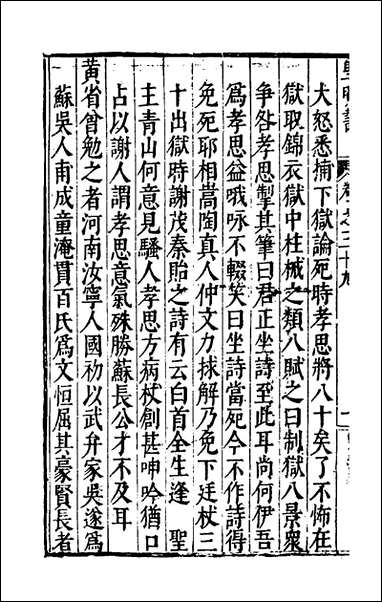 大怒悉捕下獄論死時孝思將八十矣了不怖在
獄取錦衣獄中柱械之類八賦之曰制獄八景衆
爭咎孝思掣其筆曰君正坐詩至此耳尚何伊吾
爲孝思益哦咏不輟笑曰坐詩當死今不作詩得
免死耶相嵩陶真人仲文力捄解乃免下廷杖三
十出獄時謝茂秦貽之詩有云白首全生逢 聖
主青山何意見騷人孝思方病杖創甚呻吟猶口
占以謝人謂孝思意氣殊勝蘇長公才不及耳
黃省曾勉之者河南汝寧人國初以武弁家吳遂爲
蘇吳人甫成童淹貫百氏爲文恒屈其豪賢長者
卷之二十九